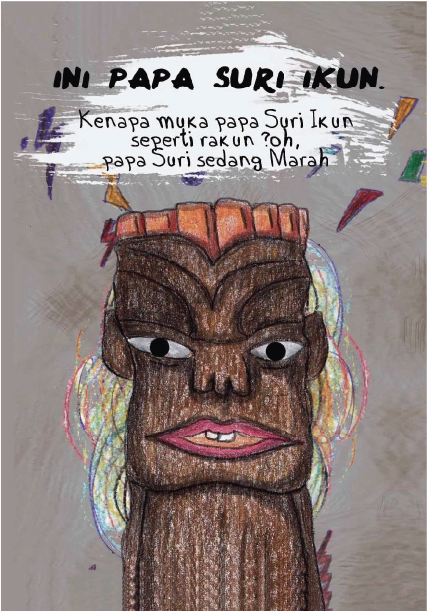 INI PAPA SURI IKUN.
Kenapa muka papa Suri Ikun
seperti rakun ?oh,
papa Suri sedang Marah